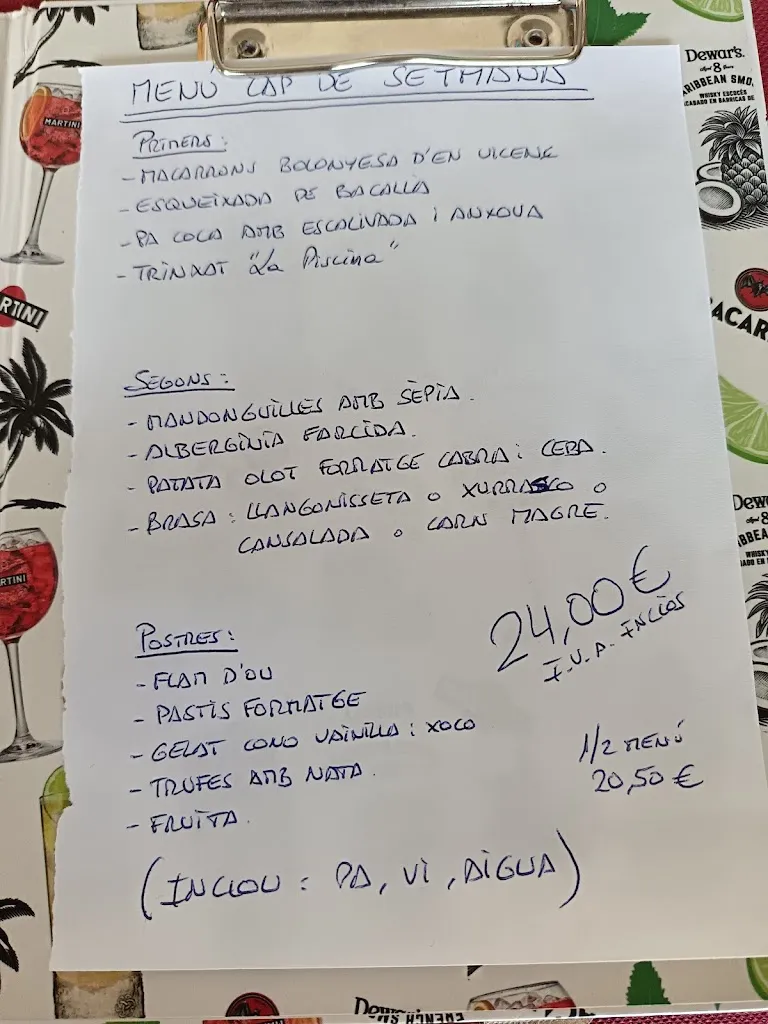 MENÚ CAP DE SETMANA
PRIMERS:
- MACARRONS BOLONYESA D'EN VICENÇ
- ESQUEIXADA DE BACALLÀ
- PA COCA AMB ESCALIVADA I ANXOVA
- TRINXAT "La Piscina"
SEGONS:
- MANDONGUILLES AMB SÈPIA.
- ALBERGÍNIA FARCIDA.
- PATATA OLOT FORMATGE CABRA I CEBA.
- BRASA: LLANGONISSETA O XURRASCO O
CANSALADA O CARN MAGRE.
24,00 €
I.V.A. INCLÒS
POSTRES:
- FLAM D'OU
- PASTÍS FORMATGE
- GELAT CONO VAINILLA I XOCO
- TRUFES AMB NATA.
- FRUITA.
1/2 MENÚ
20,50 €
(INCLOU: PA, VI, AIGUA)
MARTINI
RTINI
RTINI
Dewar's
8
RIBBEAN SMO
WHISKY ESCOCÉS
ACABADO EN BARRICAS DE
ACAR
Dew
8
BBEA